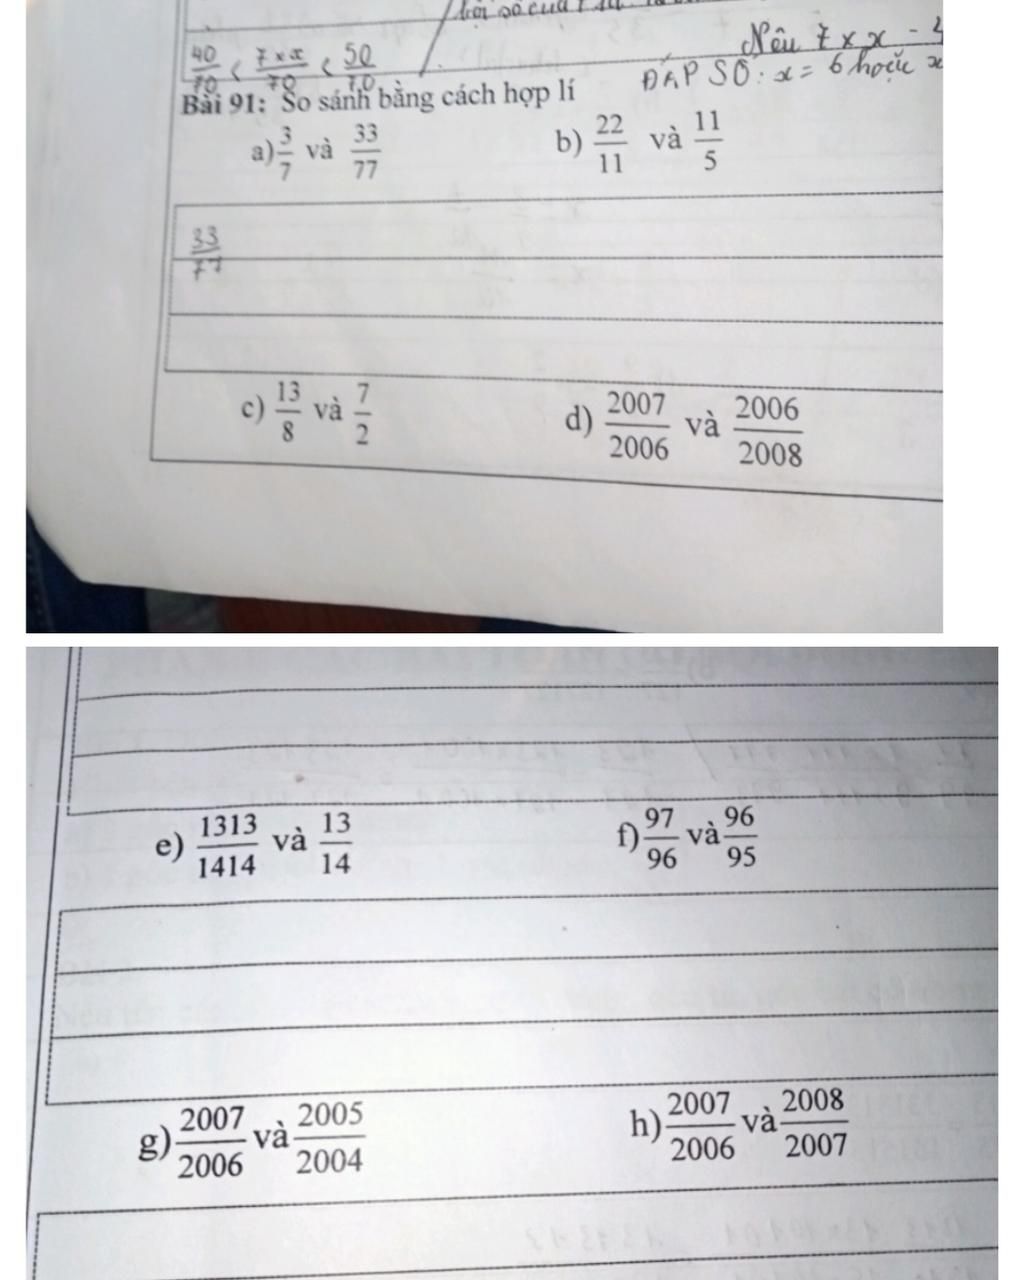 Nếu 7 x x
40/70 < 7 x x/70 < 50/70
ĐÁP SỐ: x = 6 hoặc x
Bài 91: So sánh bằng cách hợp lí
a) 3/7 và 33/77 b) 22/11 và 11/5
33/77
c) 13/8 và 7/2 d) 2007/2006 và 2006/2008
e) 1313/1414 và 13/14 f) 97/96 và 96/95
g) 2007/2006 và 2005/2004 h) 2007/2006 và 2008/2007